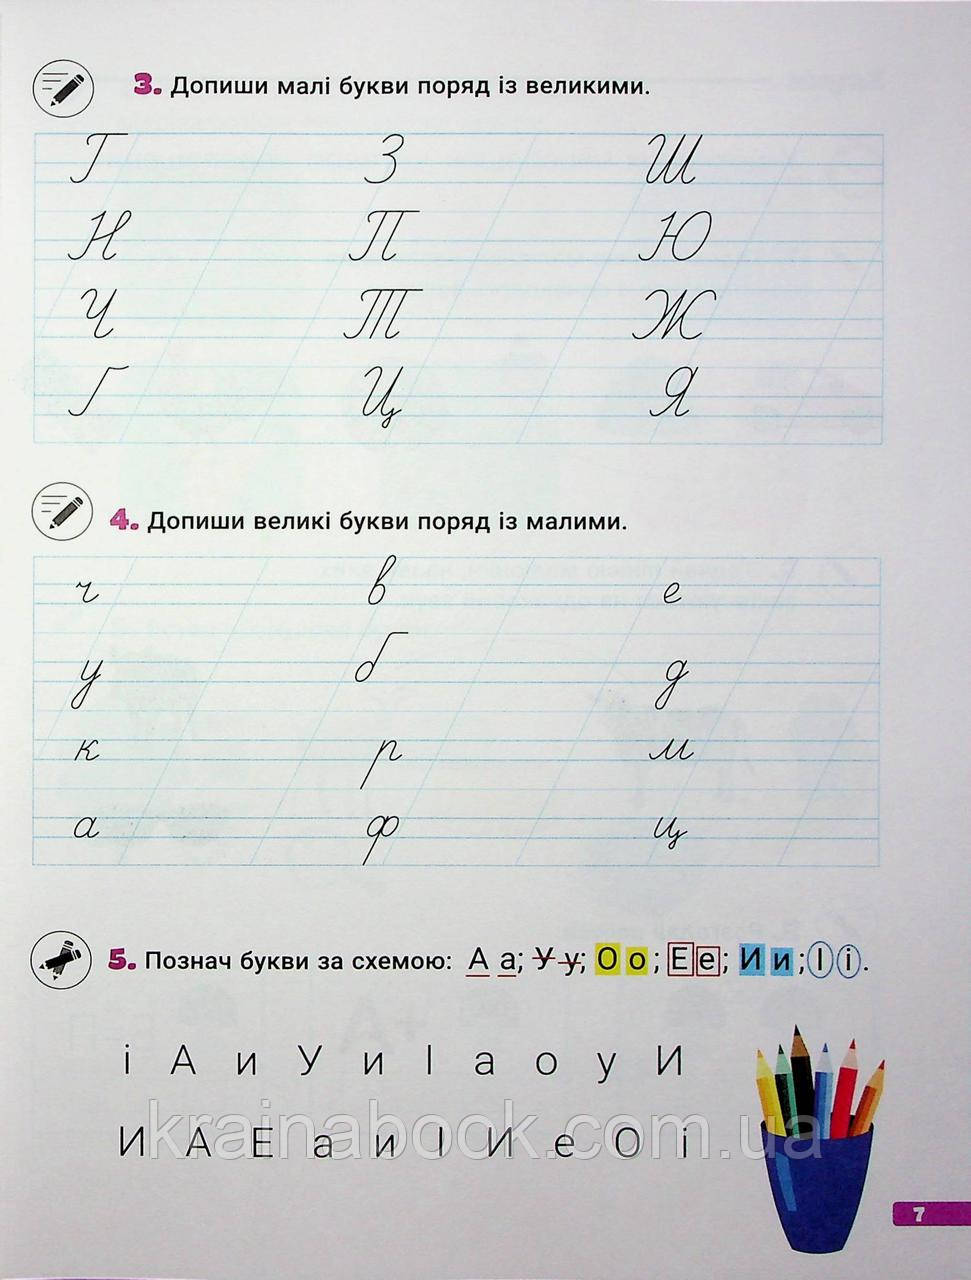 3. Допиши малі букви поряд із великими.
Г З Ш
Н П Ю
Ч Т Ж
Ґ Ц Я
4. Допиши великі букви поряд із малими.
ч в е
у б д
к р м
а ф ц
5. Познач букви за схемою: А а; У у; О о; Е е; И и; І і.
і А и У и І а о у И
И А Е а и І И е О і
krainabook.com.ua
7